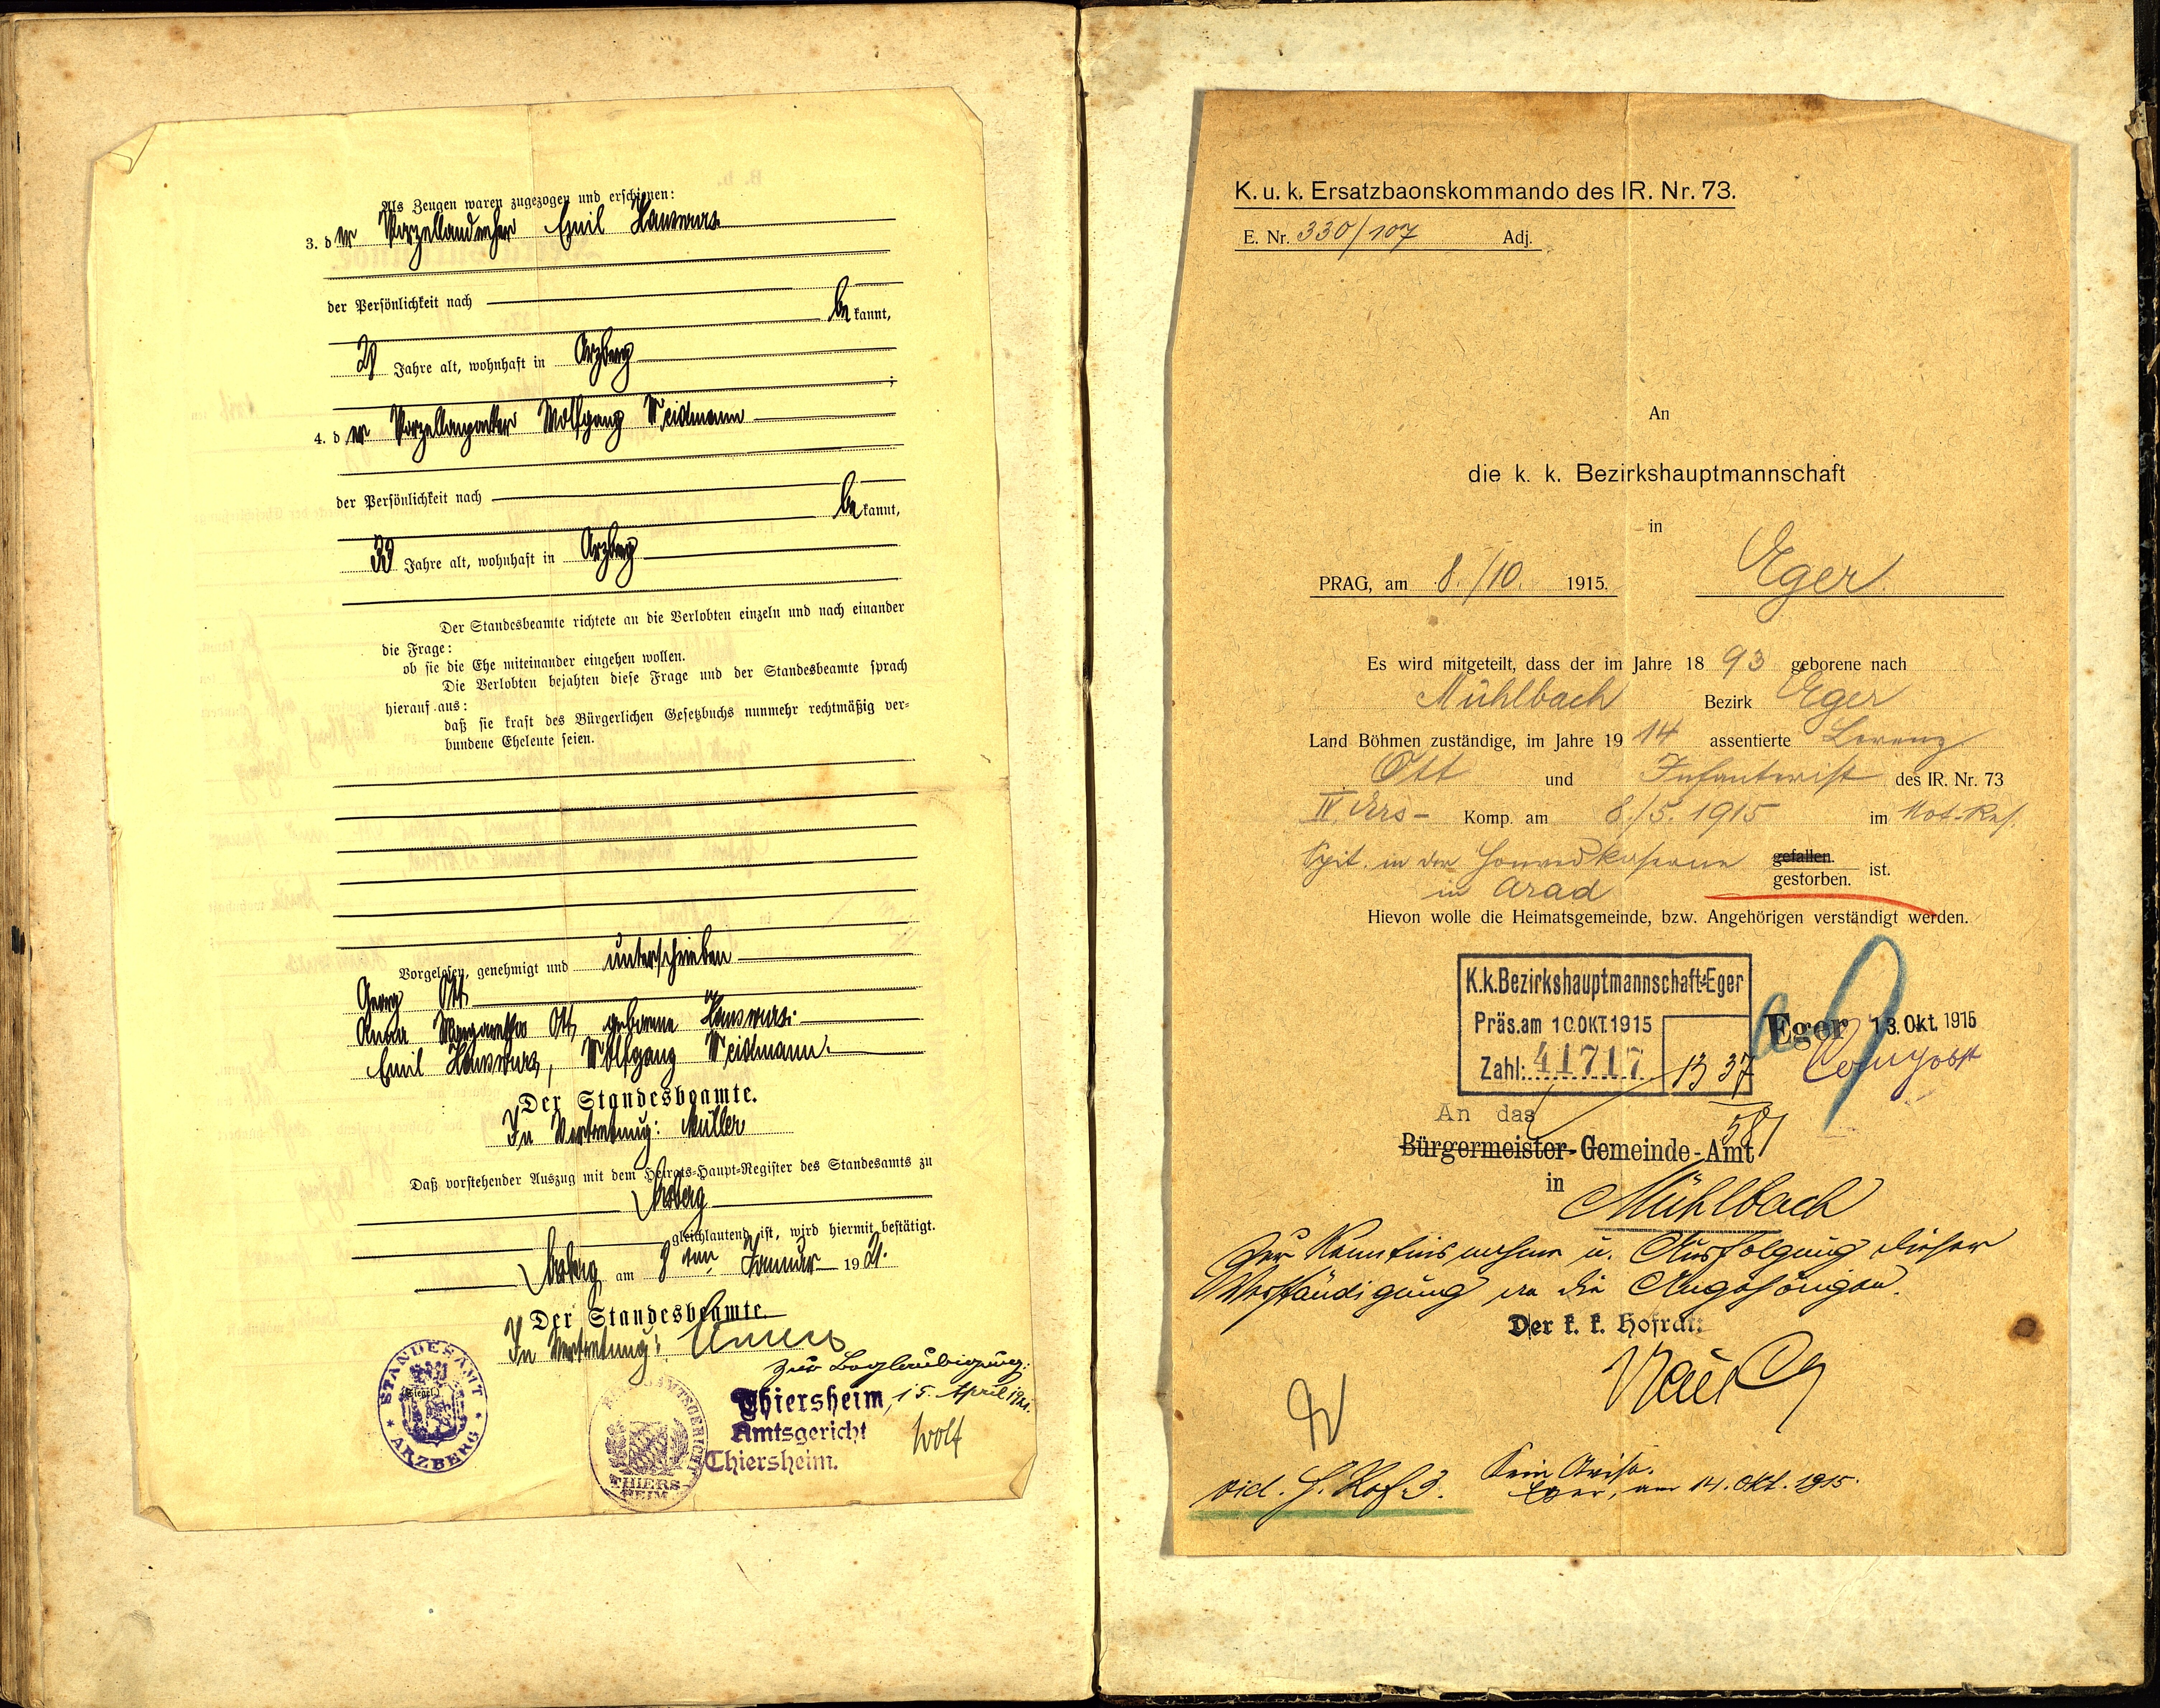 Als Zeugen waren zugezogen und erschienen:
3. der Porzellandreher Emil Hauswurz
der Persönlichkeit nach
bekannt,
Jahre alt, wohnhaft in Arzberg
;
4. der Porzellanpacker Wolfgang Neidmann
der Persönlichkeit nach
bekannt,
33 Jahre alt, wohnhaft in Arzberg
Der Standesbeamte richtete an die Verlobten einzeln und nach einander
die Frage:
ob sie die Ehe miteinander eingehen wollen.
Die Verlobten bejahten diese Frage und der Standesbeamte sprach
hierauf aus:
daß sie kraft des Bürgerlichen Gesetzbuchs nunmehr rechtmäßig ver-
bundene Eheleute seien.
Vorgelesen, genehmigt und unterschrieben
Georg Ott
Anna Margaretha Ott geborene Hauswurz.
Emil Hauswurz, Wolfgang Neidmann.
Der Standesbeamte.
In Vertretung: Müller
Daß vorstehender Auszug mit dem Heirats-Haupt-Register des Standesamts zu
Arzberg
gleichlautend ist, wird hiermit bestätigt.
Arzberg am 8ten Januar 1921.
Der Standesbeamte.
In Vertretung:
Zur Beglaubigung:
Thiersheim, 15. April 1921.
Amtsgericht
Thiersheim.
Wolf
STANDESAMT
(Siegel.)
ARZBERG
AMTSGERICHT
THIERS-
HEIM
K. u. k. Ersatzbaonskommando des IR. Nr. 73.
E. Nr. 330/107 Adj.
An
die k. k. Bezirkshauptmannschaft
in
PRAG, am 8./10. 1915. Eger
Es wird mitgeteilt, dass der im Jahre 1893 geborene nach
Mühlbach Bezirk Eger
Land Böhmen zuständige, im Jahre 1914 assentierte Lorenz
Ott und Infanterist des IR. Nr. 73
IV. Ers- Komp. am 8./5. 1915 im Not-Res.
Spit. in der Honvedkaserne gefallen.
gestorben. ist.
in Arad
Hievon wolle die Heimatsgemeinde, bzw. Angehörigen verständigt werden.
K.k.Bezirkshauptmannschaft Eger
Präs.am 10.OKT.1915
Zahl: 41717
Eger 13. Okt. 1915
An das
Bürgermeister-Gemeinde-Amt
in Mühlbach
zur Kenntnisnahme u. Ausfolgung dieser
Verständigung an die Angehörigen.
Der k. k. Hofrat:
vid.
Eger, am 14. Okt. 1915.